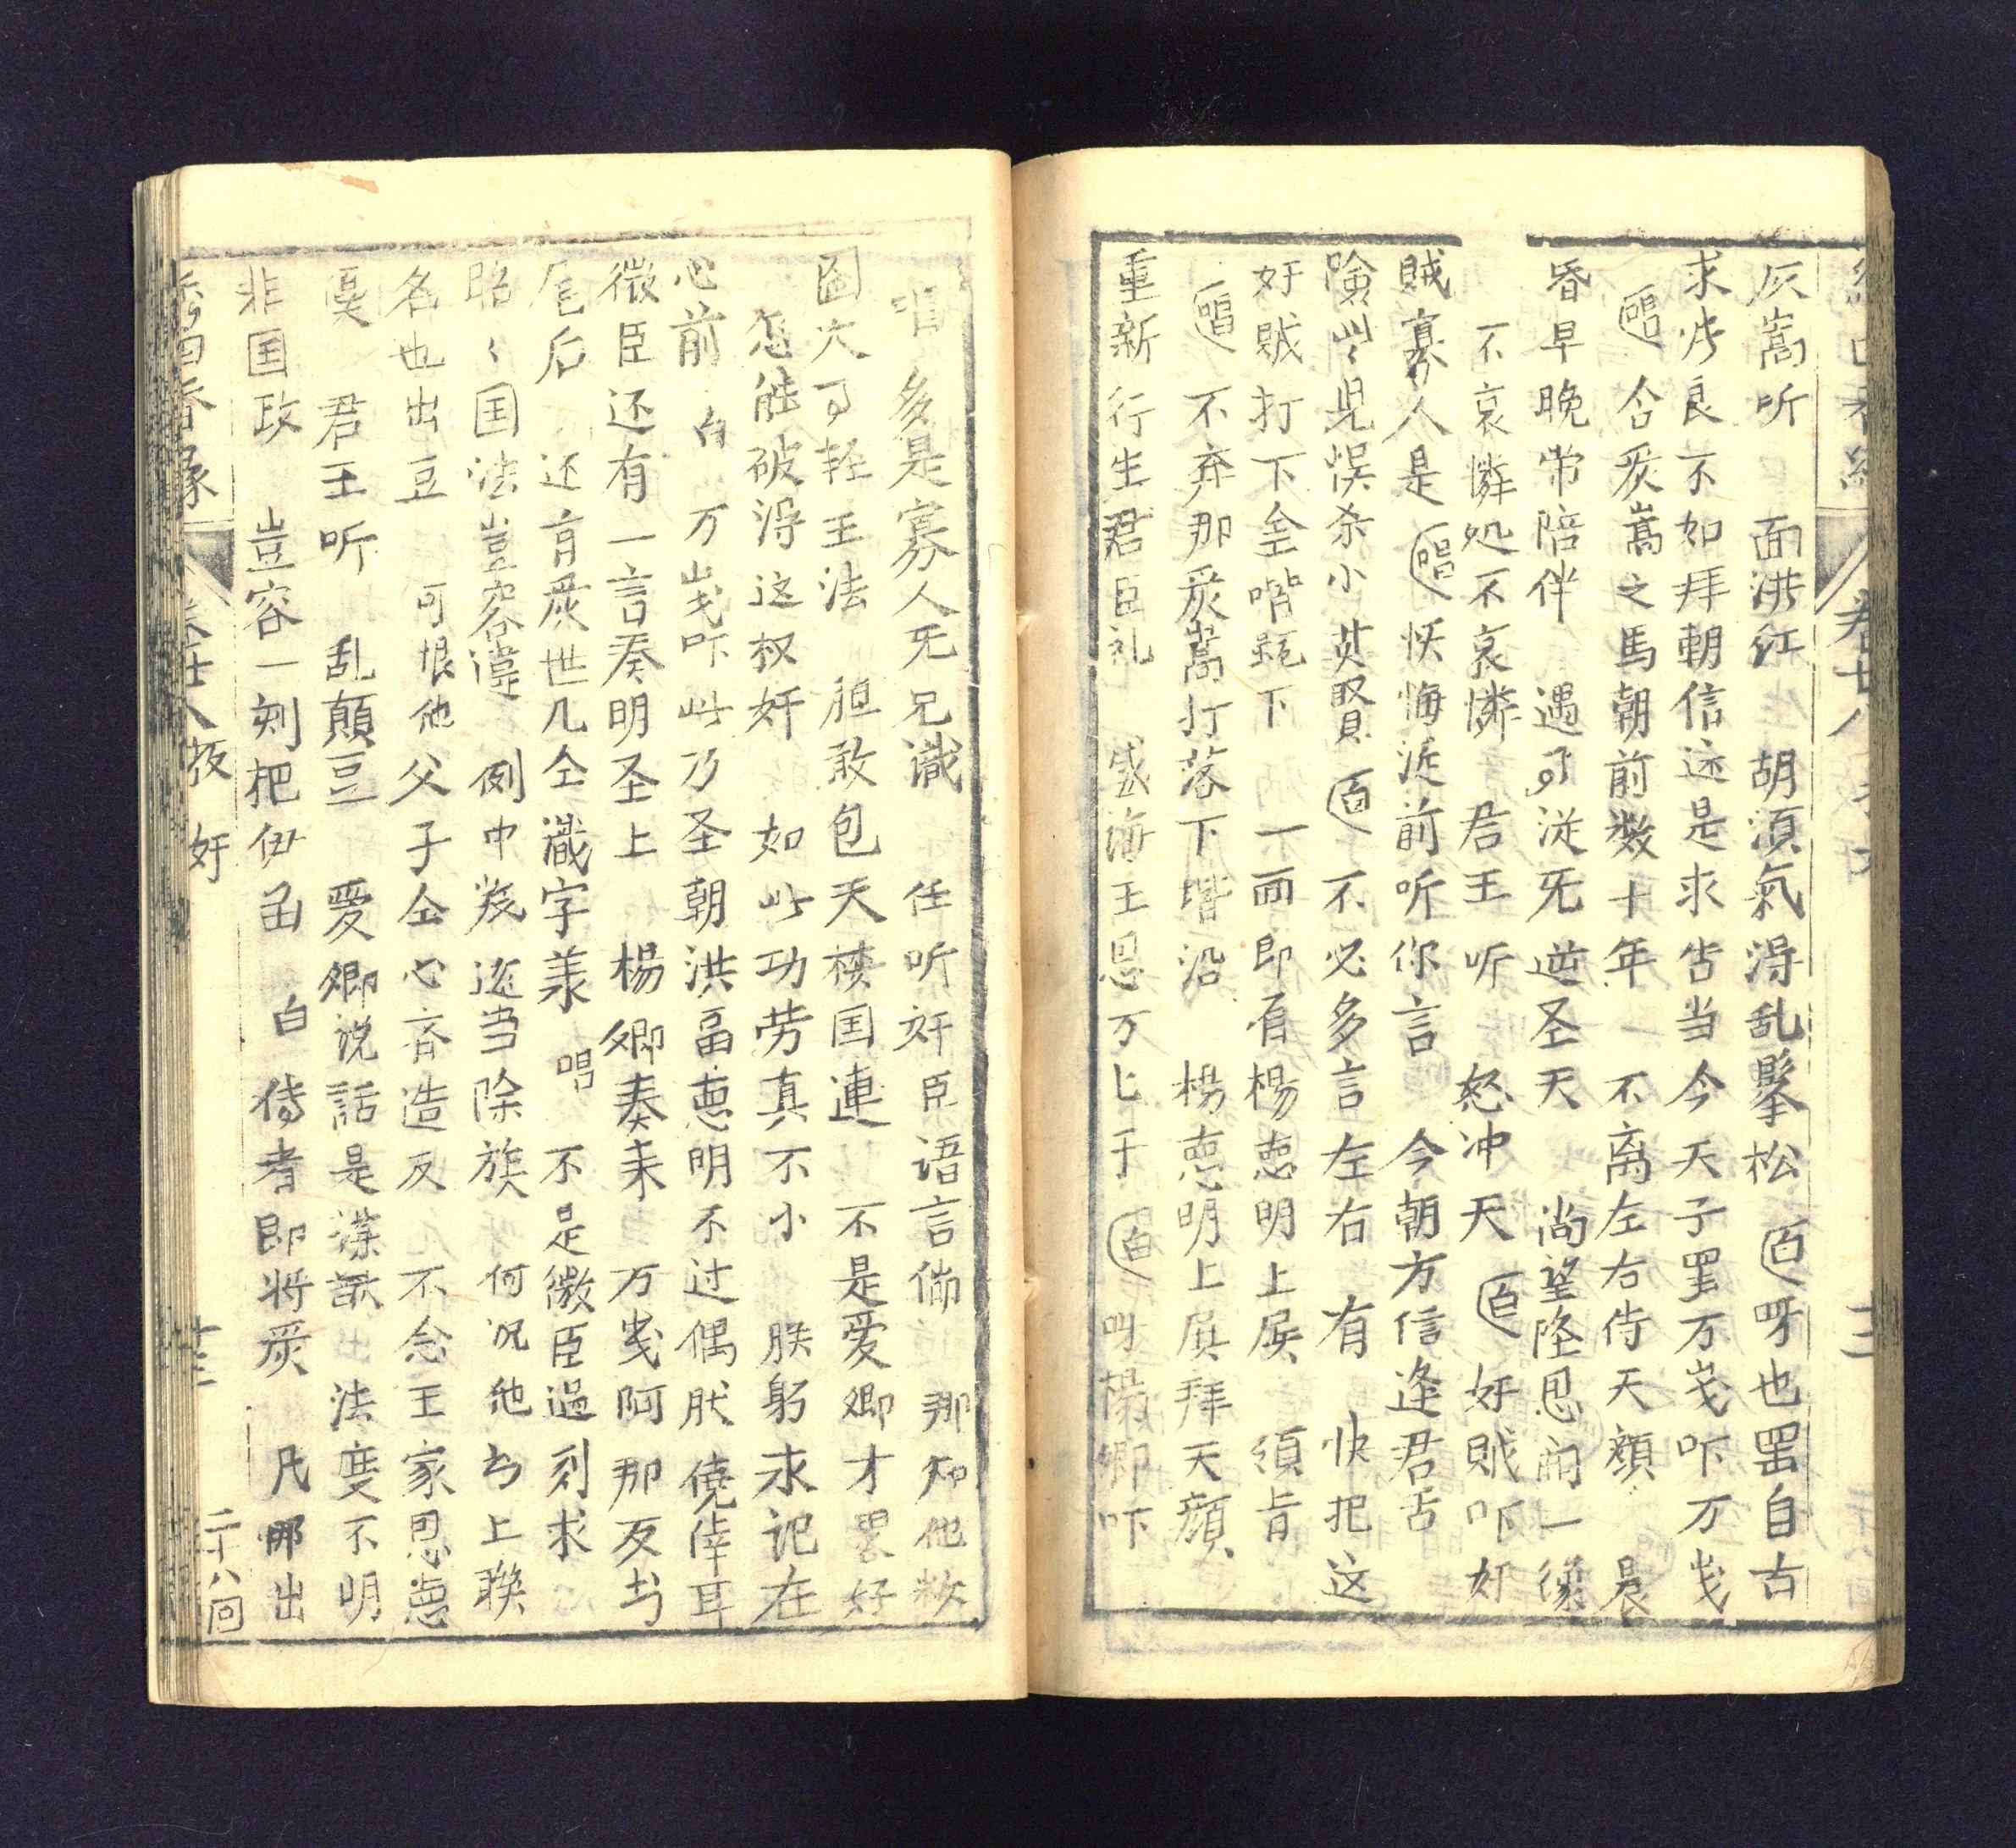 卷廿八
灰嵩听　面洪红　胡湏氣淂乱鬆松　白　呀也罢自古
求⺀良不如拜朝信还是求告当今天子罢万岁吓万岁
唱　念炭嵩之馬朝前数十年　一不离左右侍天顔　晨
昏早晚常陪伴　遇事従无逆圣天　尚望隆恩開一線
不哀憐処不哀憐　君王听　怒冲天　白　奸賊吓奸
賊寡人是　唱　恹悔従前听你言　今朝方信逢君舌
險些兒悮杀小英賢　白　不必多言左右　有　快把这
奸賊打下金階跪下　一面即宣楊惪明上殿　領旨
唱　不奔那炭嵩打落下堦沿　楊惪明上殿拜天顔
重新行生君臣礼　感海王恩万匕千　白　叫楊卿吓
唱　多是寡人无兄識　任听奸臣语言偏　那知他欺
国大事轻王法　胆敢包天模国連　不是爱卿才畧好
怎能破淂这权奸　如此功劳真不小　朕躬永记在
心前　白　万岁吓此乃圣朝洪畐惪明不过偶肰僥倖耳
微臣还有一言奏明圣上　楊卿奏来　万岁阿那反书
尾后　还有炭世凡仝識字羕　唱　不是微臣過刻求
昭⺀国法豈容違　例中叛逆当除族　何况他书上聨
名也出豆　可恨他父子仝心斉造反　不念王家恩惪
憂　君王听　乱顛豆　爱卿说話是深謀　法度不明
非国政　豈容一刻把伊函　白　侍者即将炭　凡哪出
二十八回